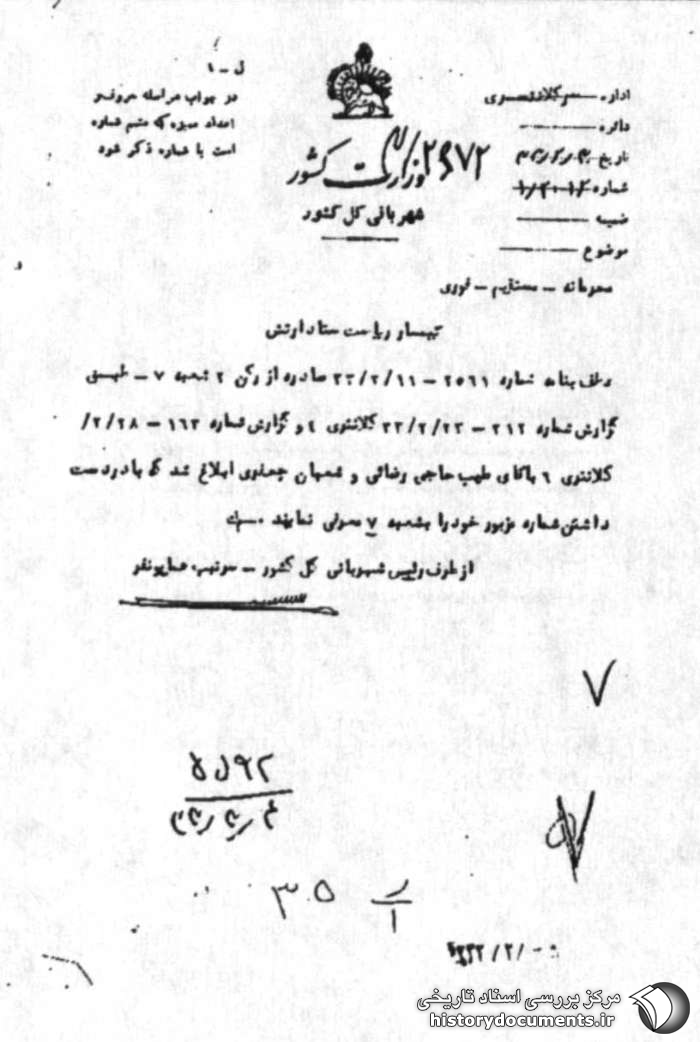 ل - ۱
در جواب مراسله حروف و
اعداد ممیزه که متمم شماره
است با شماره ذکر شود
اداره سرکلانتری
دائره
تاریخ
شماره
ضمیمه
موضوع
وزارت کشور
شهربانی کل کشور
محرمانه - مستقیم - فوری
تیمسار ریاست ستاد ارتش
عطف بنامه شماره ۲۵۶۱ - ۳۲/۲/۱۱ صادره از رکن ۲ شعبه ۷ - طبق
گزارش شماره ۲۱۲ - ۳۲/۲/۲۳ کلانتری ۴ و گزارش شماره ۱۶۳ - ۲/۲۸/
کلانتری ۶ باقای طیب حاجی رضائی و شعبان جعفری ابلاغ شد که با در دست
داشتن شماره مزبور خود را بشعبه ۷ معرفی نمایند
از طرف رئیس شهربانی کل کشور - سرتیپ
۷
۳۵
مرکز بررسی اسناد تاریخی
historydocuments.ir